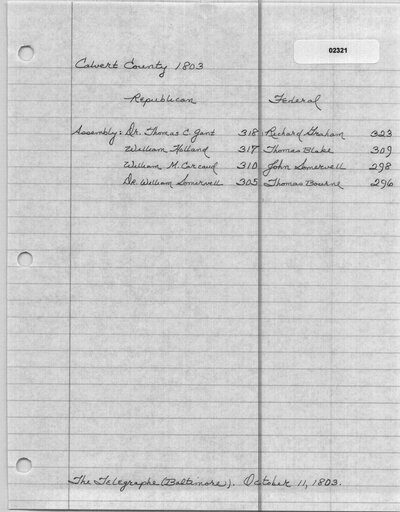 02321
Calvert County 1803
Republican Federal
Assembly: Dr. Thomas C. Gant 318 Richard Graham 323
William Holland 317 Thomas Blake 309
William M. Carcaud 310 John Somervell 298
Dr. William Somervell 305 Thomas Bourne 296
The Telegraphe (Baltimore). October 11, 1803.